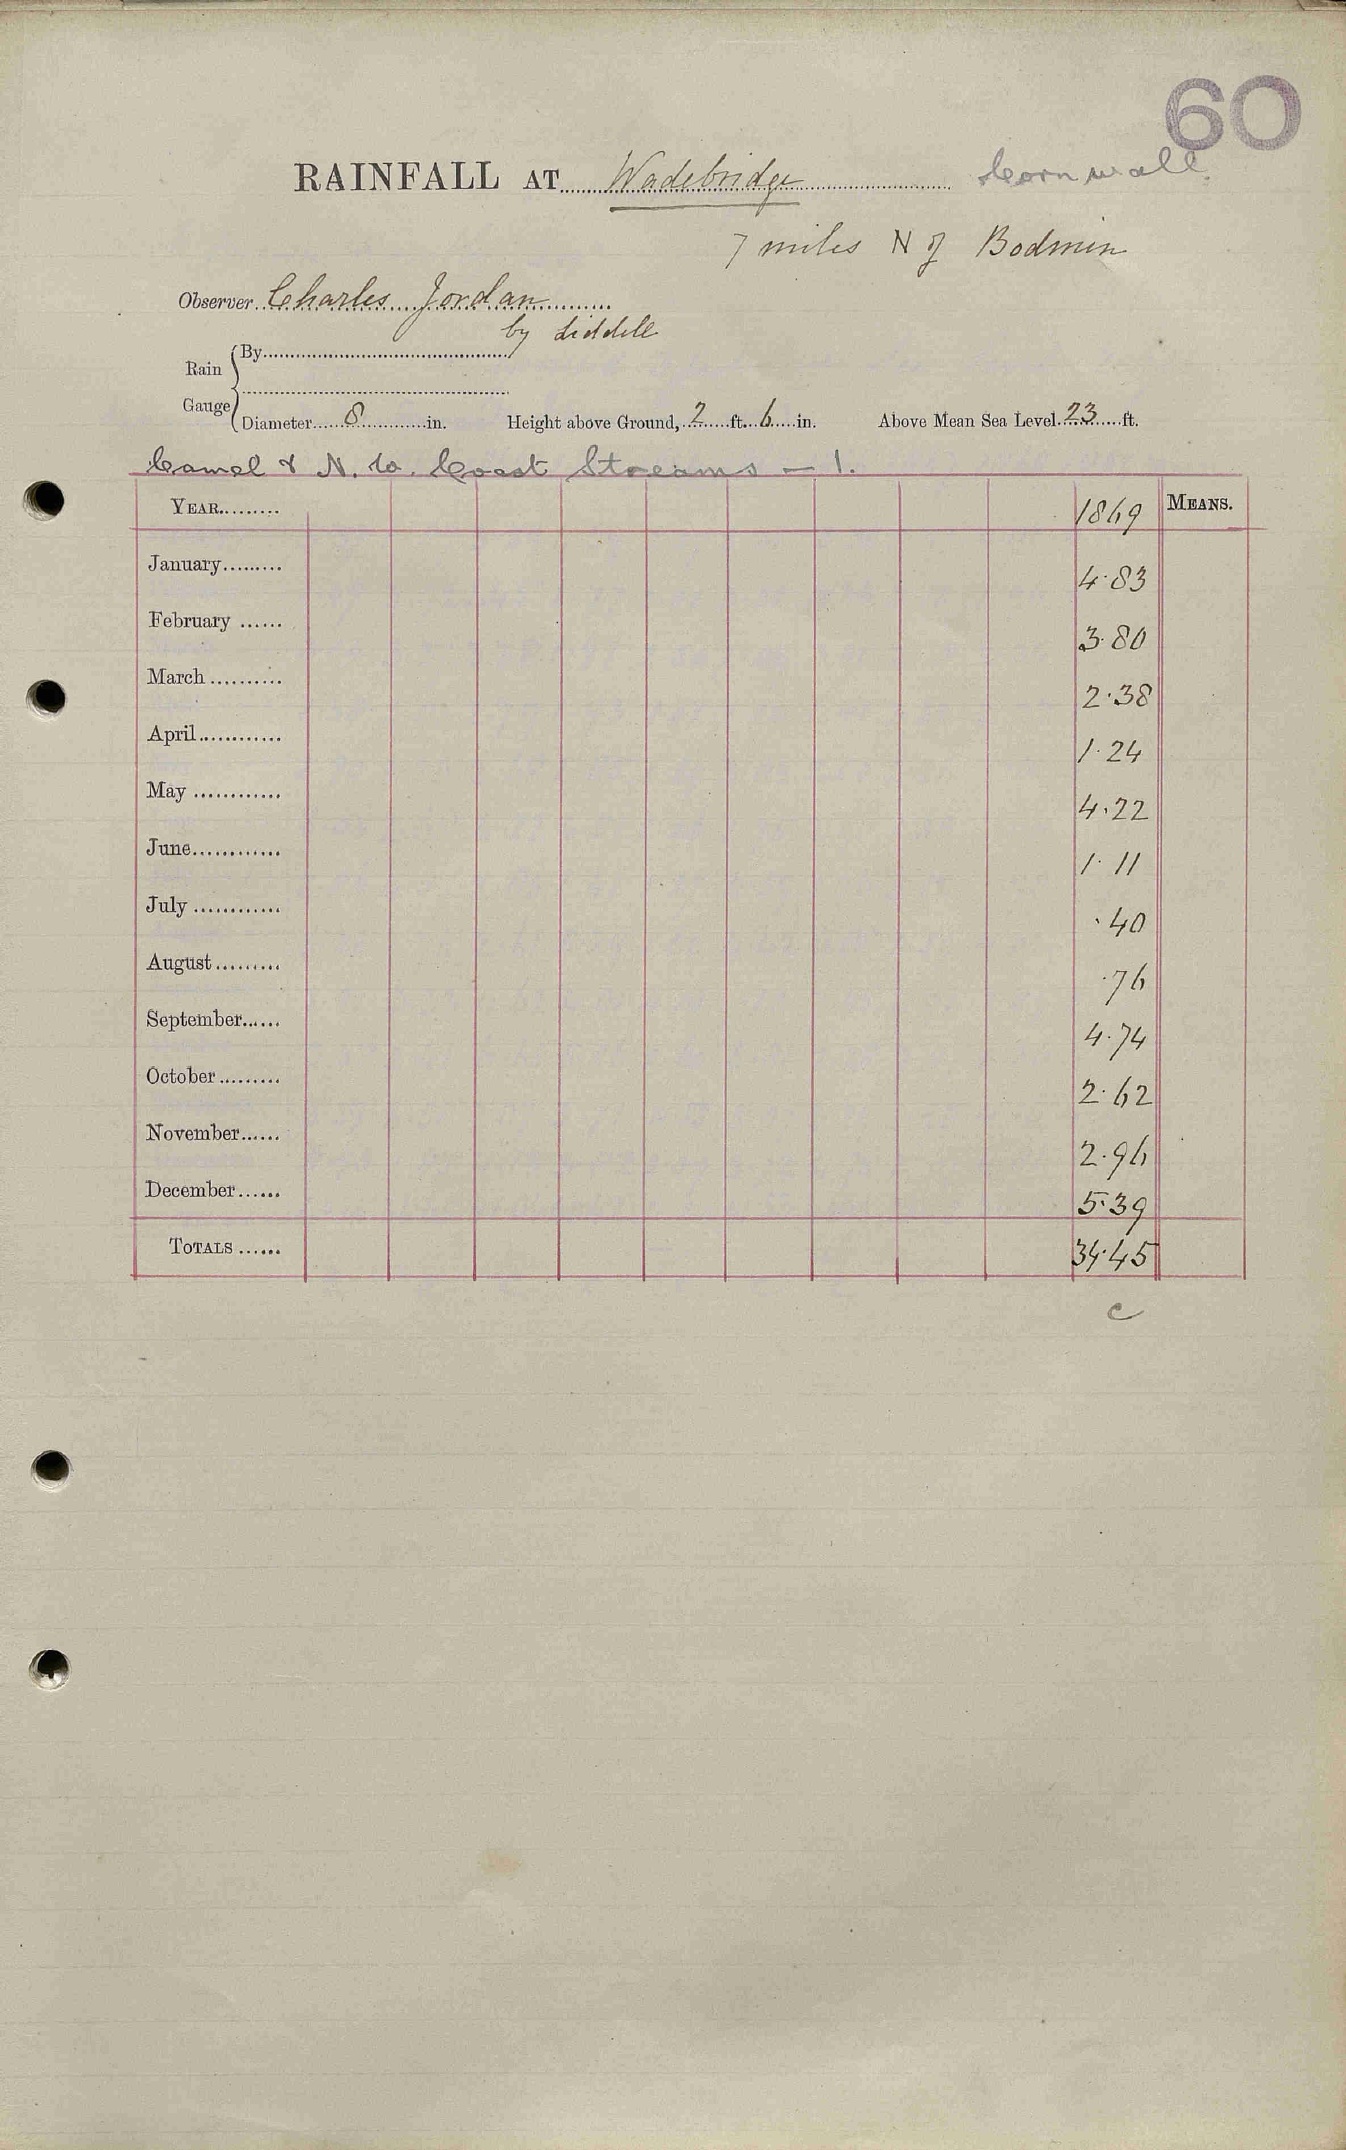 60
RAINFALL AT Wadebridge Cornwall
7 miles N of Bodmin
Observer Charles Jordan
by Liddell
Rain Gauge By
Diameter 8 in. Height above Ground, 2 ft. 6 in. Above Mean Sea Level 23 ft.
Camel & N. W. Coast Streams — 1.
YEAR 1869 MEANS.
January 4.83
February 3.80
March 2.38
April 1.24
May 4.22
June 1.11
July .40
August .76
September 4.74
October 2.62
November 2.96
December 5.39
TOTALS 34.45
c